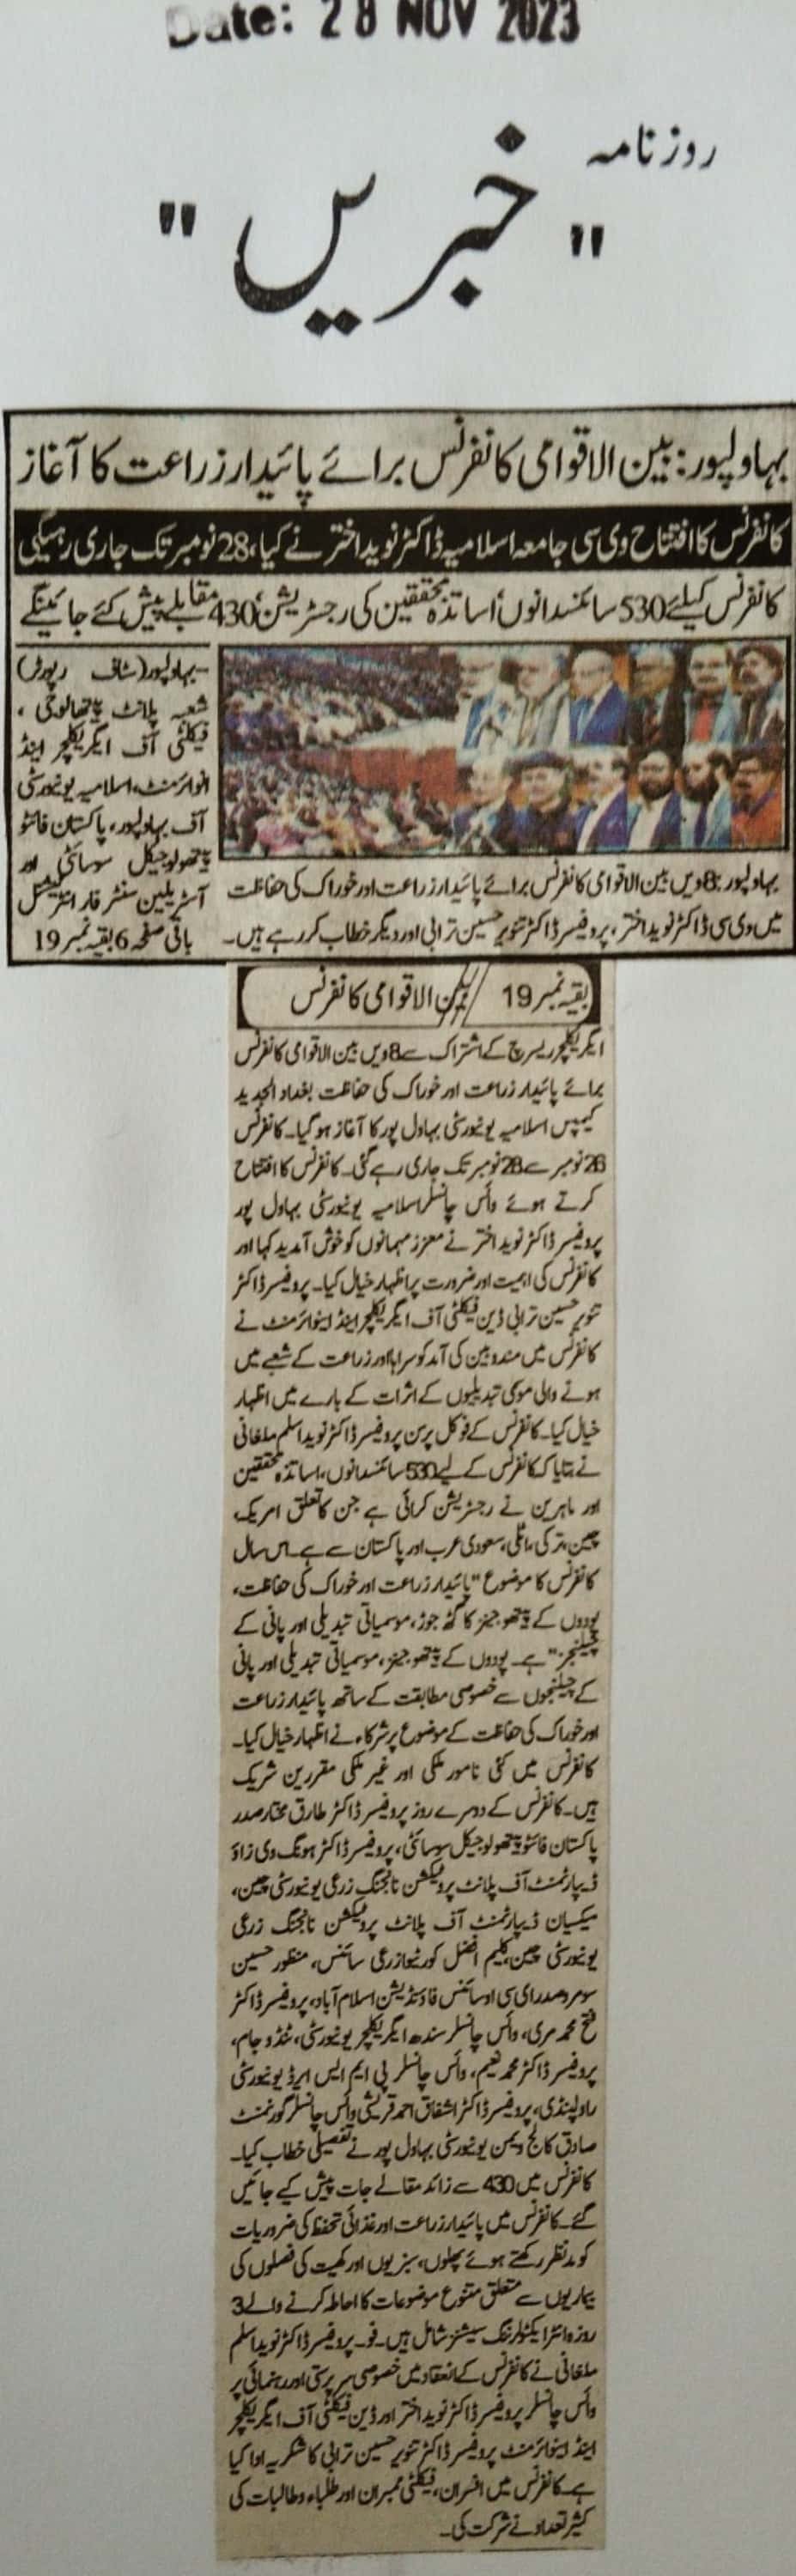 Date: 28 NOV 2023
روزنامہ
"خبریں"
بہاولپور: بین الاقوامی کانفرنس برائے پائیدار زراعت کا آغاز
کانفرنس کا افتتاح وی سی جامعہ اسلامیہ ڈاکٹر نوید اختر نے کیا، 28 نومبر تک جاری رہیگی
کانفرنس کیلئے 530 سائنسدانوں، اساتذہ محققین کی رجسٹریشن، 430 مقالے پیش کئے جائینگے
بہاولپور (سٹاف رپورٹر)
شعبہ پلانٹ پیتھالوجی،
فیکلٹی آف ایگریکلچر اینڈ
انوائرمنٹ، اسلامیہ یونیورسٹی
آف بہاولپور، پاکستان فائٹو
پیتھولوجیکل سوسائٹی اور
آسٹریلین سنٹر فار انٹرنیشنل
باقی صفحہ 6 بقیہ نمبر 19
بہاولپور: 8ویں بین الاقوامی کانفرنس برائے پائیدار زراعت اور خوراک کی حفاظت
میں وی سی ڈاکٹر نوید اختر، پروفیسر ڈاکٹر تنویر حسین ترابی اور دیگر خطاب کر رہے ہیں۔
بقیہ نمبر 19 // بین الاقوامی کانفرنس
ایگریکلچر ریسرچ کے اشتراک سے 8ویں بین الاقوامی کانفرنس
برائے پائیدار زراعت اور خوراک کی حفاظت بغداد الجدید
کیمپس اسلامیہ یونیورسٹی بہاول پور کا آغاز ہو گیا۔ کانفرنس
26 نومبر سے 28 نومبر تک جاری رہے گی۔ کانفرنس کا افتتاح
کرتے ہوئے وائس چانسلر اسلامیہ یونیورسٹی بہاول پور
پروفیسر ڈاکٹر نوید اختر نے معزز مہمانوں کو خوش آمدید کہا اور
کانفرنس کی اہمیت اور ضرورت پر اظہار خیال کیا۔ پروفیسر ڈاکٹر
تنویر حسین ترابی ڈین فیکلٹی آف ایگریکلچر اینڈ اینوائرمنٹ نے
کانفرنس میں مندوبین کی آمد کو سراہا اور زراعت کے شعبے میں
ہونے والی موسمی تبدیلیوں کے اثرات کے بارے میں اظہار
خیال کیا۔ کانفرنس کے فوکل پرسن پروفیسر ڈاکٹر نوید اسلم ملغانی
نے بتایا کہ کانفرنس کے لیے 530 سائنسدانوں، اساتذہ محققین
اور ماہرین نے رجسٹریشن کرائی ہے جن کا تعلق امریکہ،
چین، ترکی، اٹلی، سعودی عرب اور پاکستان سے ہے۔ اس سال
کانفرنس کا موضوع "پائیدار زراعت اور خوراک کی حفاظت،
پودوں کے پیتھوجینز کا گٹھ جوڑ، موسمیاتی تبدیلی اور پانی کے
چیلنجز" ہے۔ پودوں کے پیتھوجینز، موسمیاتی تبدیلی اور پانی
کے چیلنجوں سے خصوصی مطابقت کے ساتھ پائیدار زراعت
اور خوراک کی حفاظت کے موضوع پر شرکاء نے اظہار خیال کیا۔
کانفرنس میں کئی نامور ملکی اور غیر ملکی مقررین شریک
ہیں۔ کانفرنس کے دوسرے روز پروفیسر ڈاکٹر طارق مختار صدر
پاکستان فائٹو پیتھولوجیکل سوسائٹی، پروفیسر ڈاکٹر ہونگ وی زاؤ
ڈیپارٹمنٹ آف پلانٹ پروٹیکشن نانجنگ زرعی یونیورسٹی چین،
میکسیان ڈیپارٹمنٹ آف پلانٹ پروٹیکشن نانجنگ زرعی
یونیورسٹی چین، کلیم افضل کورٹیوا زرعی سائنس، منظور حسین
سومرو صدر ای سی او سائنس فاؤنڈیشن اسلام آباد، پروفیسر ڈاکٹر
فتح محمد مری، وائس چانسلر سندھ ایگریکلچر یونیورسٹی، ٹنڈو جام،
پروفیسر ڈاکٹر محمد نعیم، وائس چانسلر پی ایم ایس ایرڈ یونیورسٹی
راولپنڈی، پروفیسر ڈاکٹر اشفاق احمد قریشی وائس چانسلر گورنمنٹ
صادق کالج ویمن یونیورسٹی بہاول پور نے تفصیلی خطاب کیا۔
کانفرنس میں 430 سے زائد مقالے جات پیش کیے جائیں
گے۔ کانفرنس میں پائیدار زراعت اور غذائی تحفظ کی ضروریات
کو مدنظر رکھتے ہوئے پھلوں، سبزیوں اور کھیت کی فصلوں کی
بیماریوں سے متعلق متنوع موضوعات کا احاطہ کرنے والے 3
روزہ انٹرایکٹو لرننگ سیشنز شامل ہیں۔ پروفیسر ڈاکٹر نوید اسلم
ملغانی نے کانفرنس کے انعقاد میں خصوصی سرپرستی اور رہنمائی پر
وائس چانسلر پروفیسر ڈاکٹر نوید اختر اور ڈین فیکلٹی آف ایگریکلچر
اینڈ اینوائرمنٹ پروفیسر ڈاکٹر تنویر حسین ترابی کا شکریہ ادا کیا
ہے۔ کانفرنس میں افسران، فیکلٹی ممبران اور طلباء و طالبات کی
کثیر تعداد نے شرکت کی۔